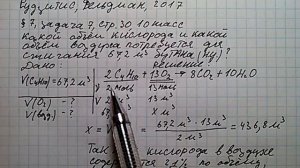 Рудзитис, Фельдман, 2017
§7, задача 7, стр. 30 10 класс
Какой объём кислорода и какой
объём воздуха потребуется для
сжигания 67,2 м³ бутана (н.у.)?
Дано: Решение:
V(C₄H₁₀)=67,2 м³ 2C₄H₁₀ + 13O₂ → 8CO₂ + 10H₂O
V(O₂) - ? ν 2 моль 13 моль
V(возд) - ? V 2 м³ 13 м³
67,2 м³ x м³
x = V = 67,2 м³ · 13 м³ / 2 м³ = 436,8 м³
Так кислорода в воздухе
21% по объёму,